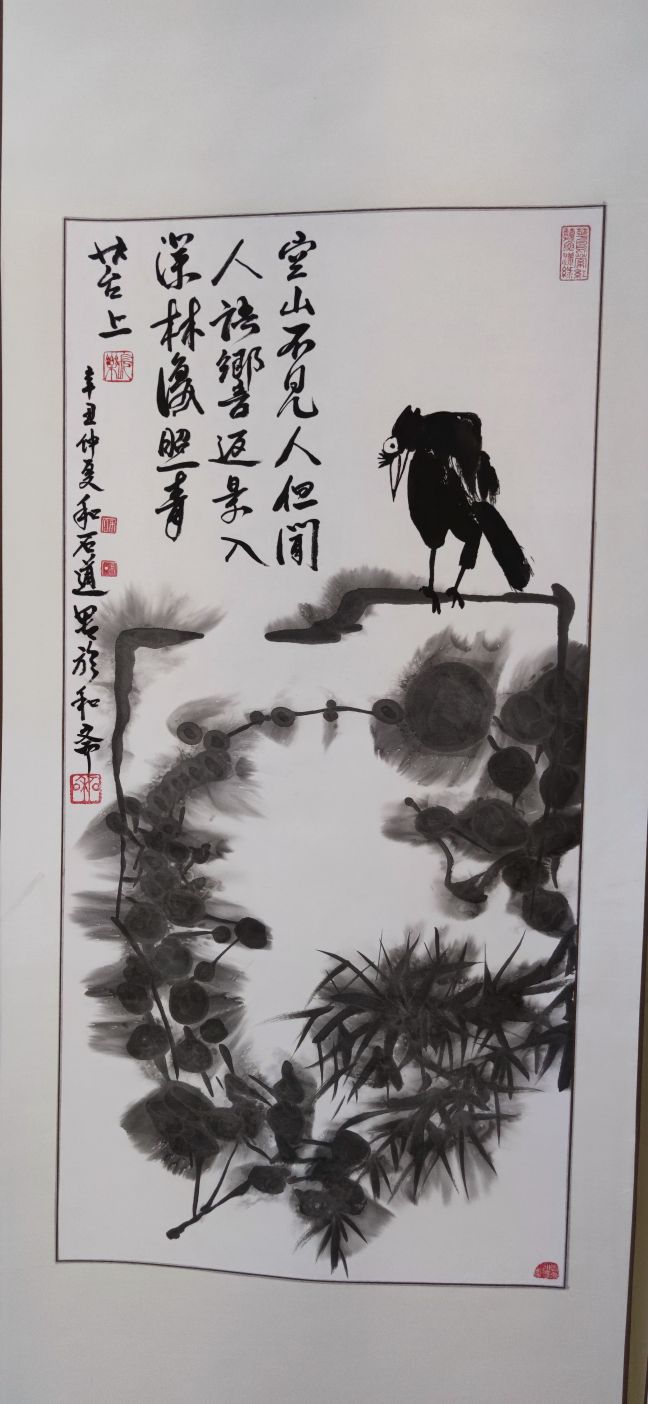 空山不見人但聞
人語響返景入
深林復照青
苔上
辛丑仲夏和石道
署於和齋